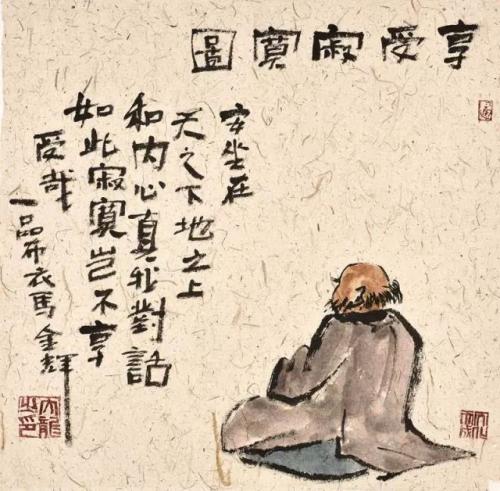 享受寂寞圖
安坐在
天之下地之上
和内心真我對話
如此寂寞豈不享
受哉
一品布衣馬金輝